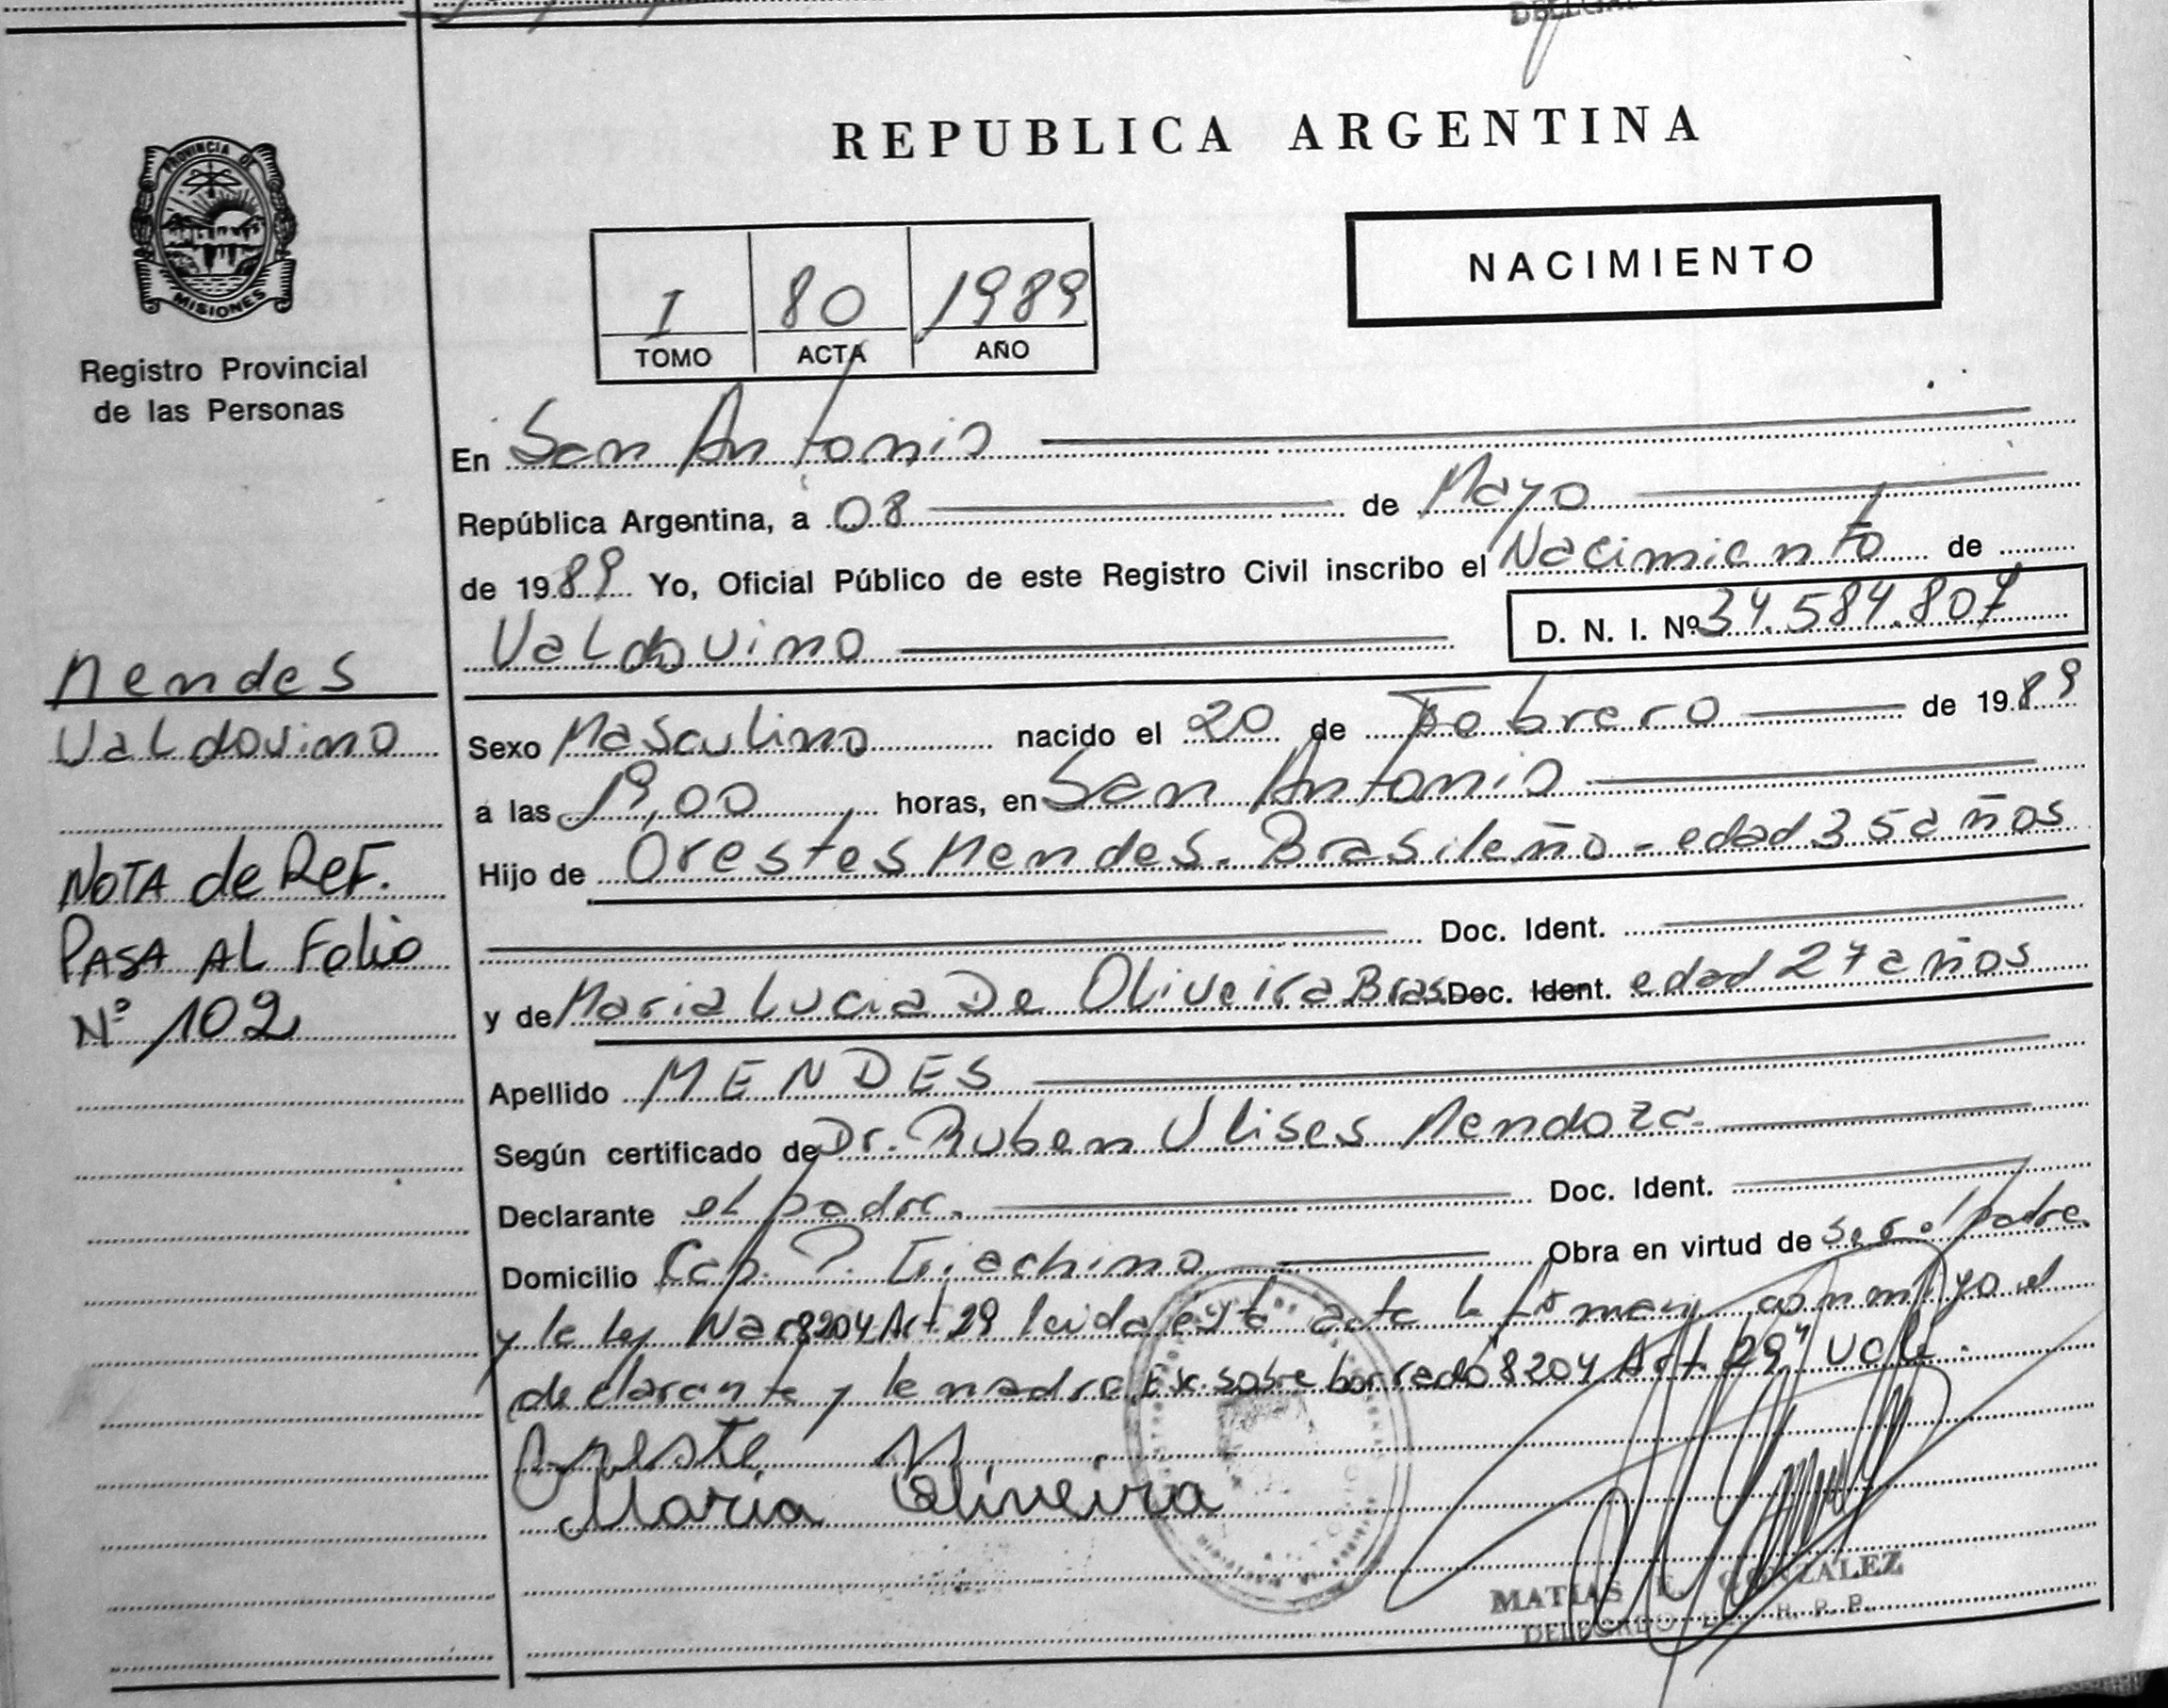 REPUBLICA ARGENTINA
PROVINCIA DE
MISIONES
Registro Provincial
de las Personas
NACIMIENTO
I 80 1989
TOMO ACTA AÑO
En San Antonio
República Argentina, a 08 de Mayo
de 1989 Yo, Oficial Público de este Registro Civil inscribo el Nacimiento de
Valdovino D. N. I. Nº 34.584.807
Mendes
Valdovino
NOTA de REF.
PASA AL Folio
Nº 102
Sexo Masculino nacido el 20 de Febrero de 1989
a las 19,00 horas, en San Antonio
Hijo de Orestes Mendes. Brasileño - edad 35 años
Doc. Ident.
y de Maria Lucia De Oliveira Bras. Doc. Ident. edad 27 años
Apellido MENDES
Según certificado de Dr. Ruben Ulises Mendoza.
Declarante el padre. Doc. Ident.
Domicilio Cap. P. Giachino Obra en virtud de ser el padre
y la ley Nac 8204 Art 29 leida esta acta la firman conmigo el
declarante y la madre Ex. sobre borrado 8204 Art. 29" Vale.
Oreste M
Maria Oliveira
MATIAS E. GONZALEZ
DELEGADO